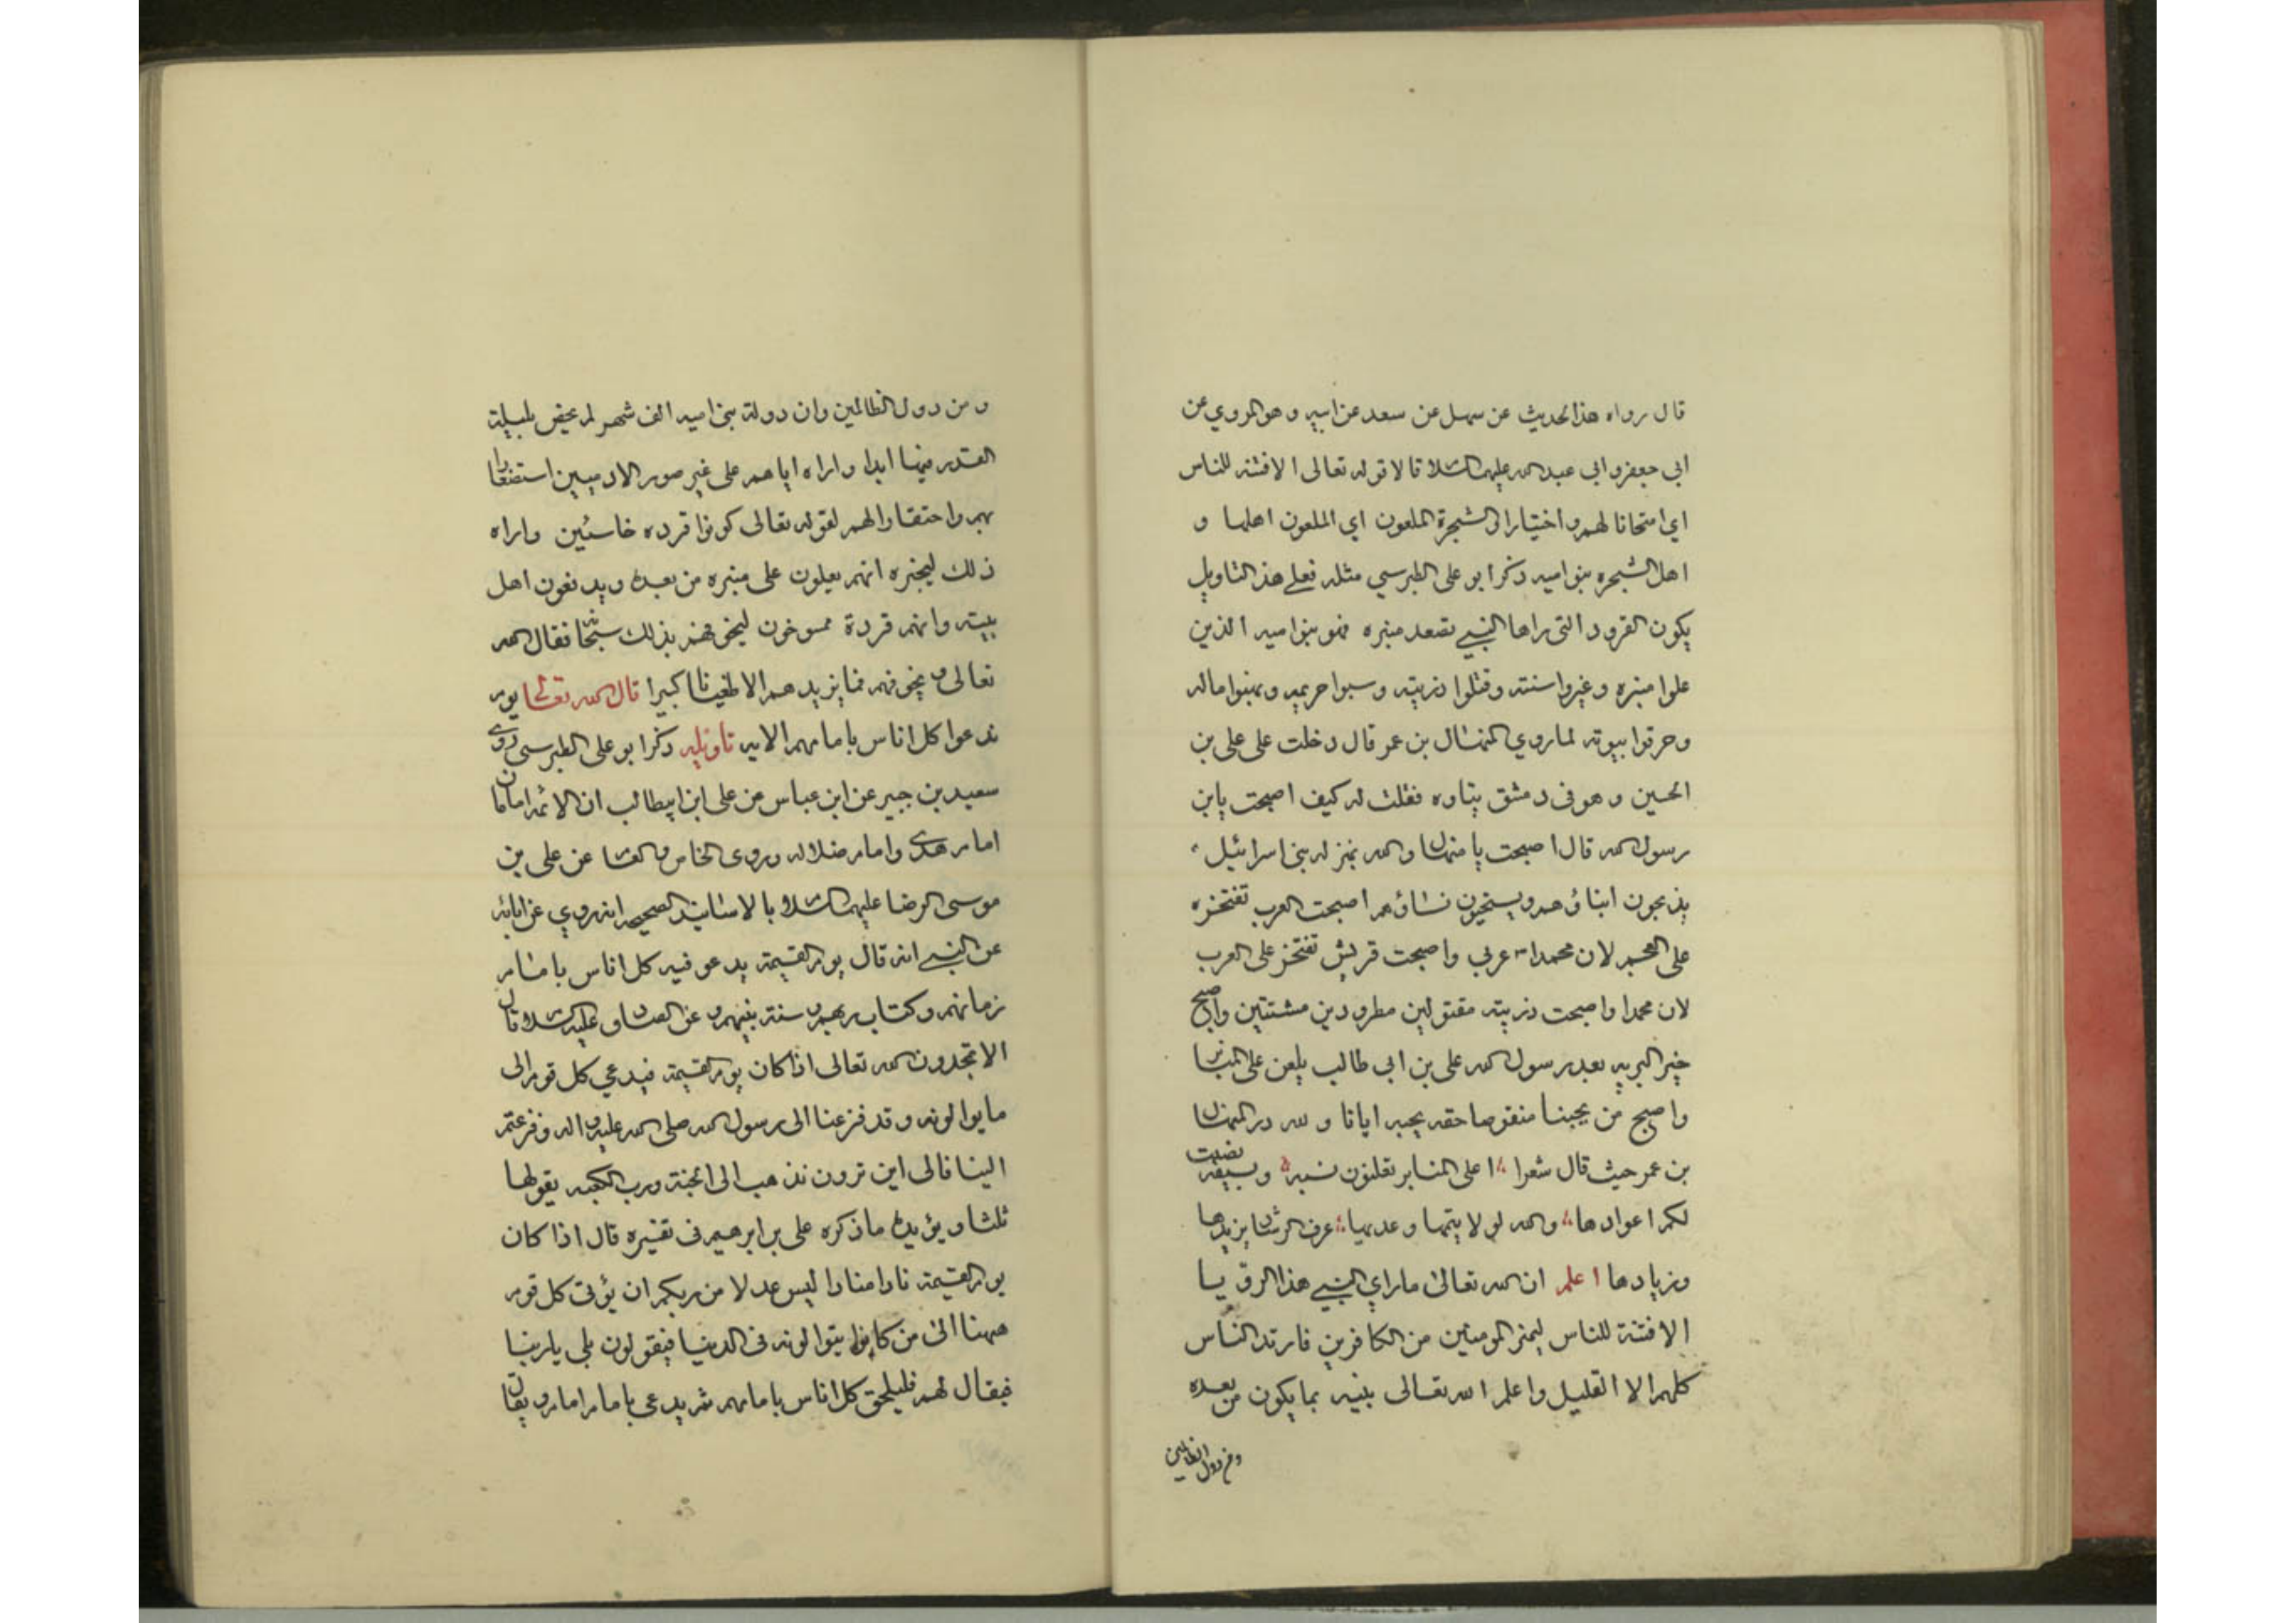 قال رواه هذا الحديث عن سهل عن سعد عن ابيه وهو المروي عن
ابي جعفر وابي عبد الله عليهما السلام قالا قوله تعالى الا فتنة للناس
اي امتحانا لهم واختيارا الشجرة الملعون اي الملعون اهلها و
اهل الشجره بنو اميه ذكر ابو علي الطبرسي مثله فعلى هذا التاويل
يكون القرود التي راها النبي تصعد منبره فهو بنو اميه الذين
علوا منبره وغيروا سنته وقتلوا ذريته وسبوا حريمه ونهبوا ماله
وحرقوا بيوته لما روي المنهال بن عمر قال دخلت على علي بن
الحسين وهو في دمشق فقلت له كيف اصبحت يابن
رسول الله قال اصبحت يا منهال والله بمنزله بني اسرائيل
يذبحون ابناؤهم ويستحيون نساؤهم اصبحت العرب تفتخره
على العجم لان محمدا عربي واصبحت قريش تفتخر على العرب
لان محمدا واصبحت ذريته مقتولين مطرودين مشتتين واصبح
خير البريه بعد رسول الله علي بن ابي طالب يلعن على المنابر
واصبح من يحبنا منقوصا حقه بحبه ايانا و لله در المنهال
بن عمر حيث قال شعرا اعلى المنابر تعلنون نسبه وبسيفه نصبت
لكم اعوادها والله لولا يتمها وعديها عرف الرشاد يزيدها
وزيادها اعلم ان الله تعالى ما راي النبي هذا الرؤيا
الا فتنة للناس ليمز المومنين من الكافرين فارتد الناس
كلهم الا القليل واعلم الله تعالى نبيه بما يكون من بعده
ومن دول الظالمين
ومن دول الظالمين وان دولة بني اميه الف شهر لم بليلة
القدر فيها ابدا واراه اياهم على غير صور الادميين استصغارا
بهم واحتقارا لهم لقوله تعالى كونوا قرده خاسئين واراه
ذلك ليخبره انهم يعلون على منبره من بعده ويدفعون اهل
بيته وانهم قردة ممسوخون ليخوفهم بذلك فقال الله
تعالى ونخوفهم فما يزيدهم الا طغيانا كبيرا قال الله تعالى يوم
ندعوا كل اناس بامامهم الايه تاويله ذكر ابو علي الطبرسي روى
سعيد بن جبير عن ابن عباس عن علي ابن ابيطالب ان الائمه امامان
امام هدى وامام ضلاله وروى الخاص والعام عن علي بن
موسى الرضا عليهما السلام بالاسانيد الصحيحه انه روي عن ابائه
عن النبي انه قال يوم القيمة يدعو فيه كل اناس بامام
زمانهم وكتاب ربهم وسنة نبيهم وعن الصادق عليه السلام قال
الا تحمدون الله تعالى اذا كان يوم القيمة فيدعي كل قوم الى
ما يوالونه وقد فزعنا الى رسول الله صلى الله عليه واله وفزعتم
الينا فالى اين ترون نذهب الى الجنة ورب الكعبه يقولها
ثلثا ويؤيده ما ذكره علي بن ابرهيم في تفسيره قال اذا كان
يوم القيمة نادا منادا ليس عدلا من ربكم ان يؤتى كل قوم
من كانوا يتوالونه في الدنيا فيقولون بلى يا ربنا
فيقال لهم فليلحق كل اناس بامامهم ثم يدعى بامام امام ويقال